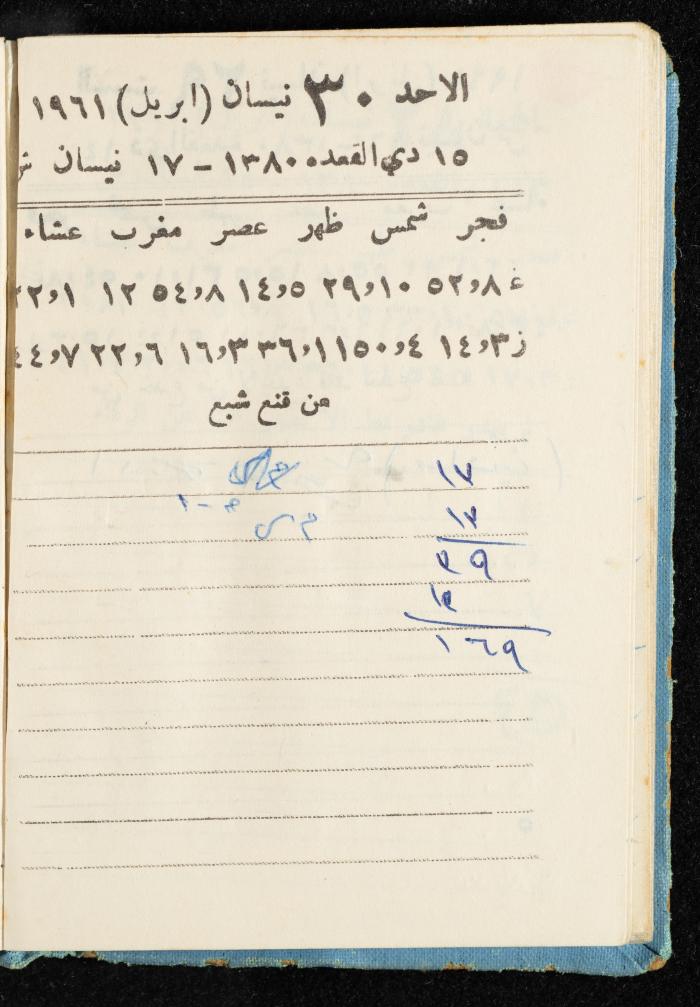 الاحد ٣٠ نيسان (ابريل) ١٩٦١
١٥ ذي القعده ١٣٨٠ – ١٧ نيسان
فجر شمس ظهر عصر مغرب عشاء
غ ٥٢و٨ ٢٩و١٠ ١٤و٥ ٥٤و٨ ١٢ ٢٢و١
ز ١٤و٣ ٥٠و٤ ٣٦و١١ ١٦و٣ ٢٢و٦ ٤٤و٧
من قنع شبع
١٣
١٣
٣٩
١٣
١٦٩